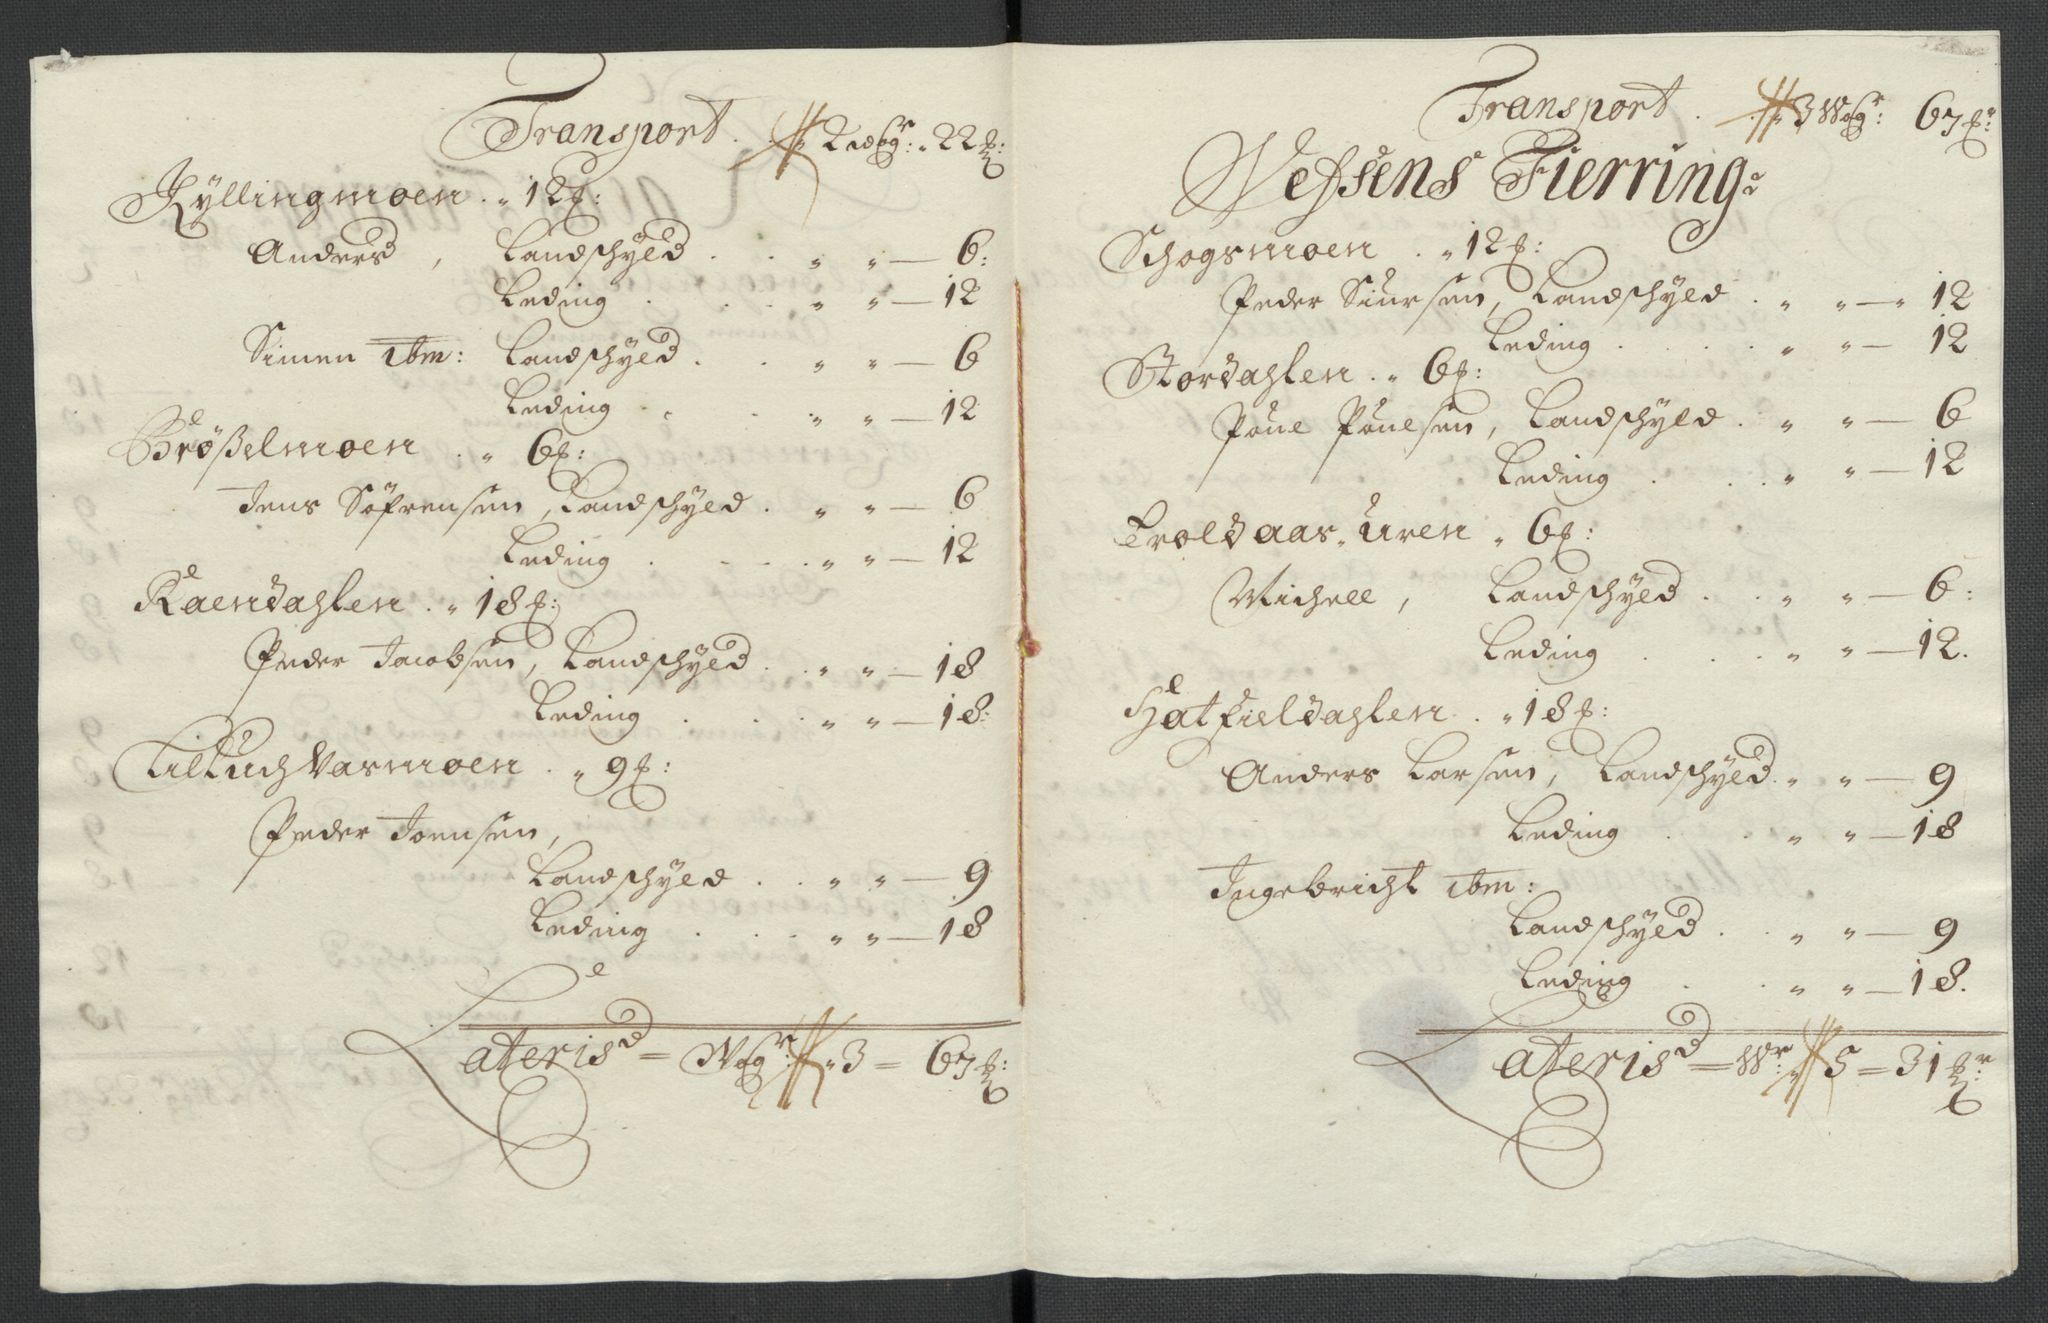 Transport. 2 Wogr: 22 ℔:
Kyllingmoen . „ 12 ℔:
Anders, Landschyld . . „ „ — 6:
Leding . . . „ „ — 12
Simen ibm: Landschyld . . „ „ — 6
Leding . . „ „ — 12
Brößelmoen . „ 6 ℔:
Jens Söfrensen, Landschyld . „ „ — 6
Leding . . . „ „ — 12
Raendahlen . „ 18 ℔:
Peder Jacobsen, Landschyld . „ „ — 18
Leding . . . „ „ — 18:
Lille Luchvasmoen . „ 9 ℔:
Peder Joensen,
Landschyld . . „ „ — 9
Leding . . . „ „ — 18
Lateris = Wogr: „ 3 = 67 ℔:
Transport . 3 Wogr: 67 ℔:
Vefsens Fierring:
Schogsmoen . „ 12 ℔:
Peder Siursen, Landschyld . „ „ — 12
Leding . . . „ „ — 12
Stordahlen . „ 6 ℔:
Poul Poulsen, Landschyld . „ „ — 6
Leding . . . „ „ — 12
Troldaas Uren „ 6 ℔:
Michell, Landschyld . . „ „ — 6:
Leding . . . „ „ — 12.
Hatfieldahlen . „ 18 ℔:
Anders Larsen, Landschyld . „ „ — 9
Leding . . „ „ — 18
Ingebricht ibm:
Landschyld . . „ „ — 9
Leding . . „ „ — 18.
Lateris = Wr: 5 = 31 ℔: